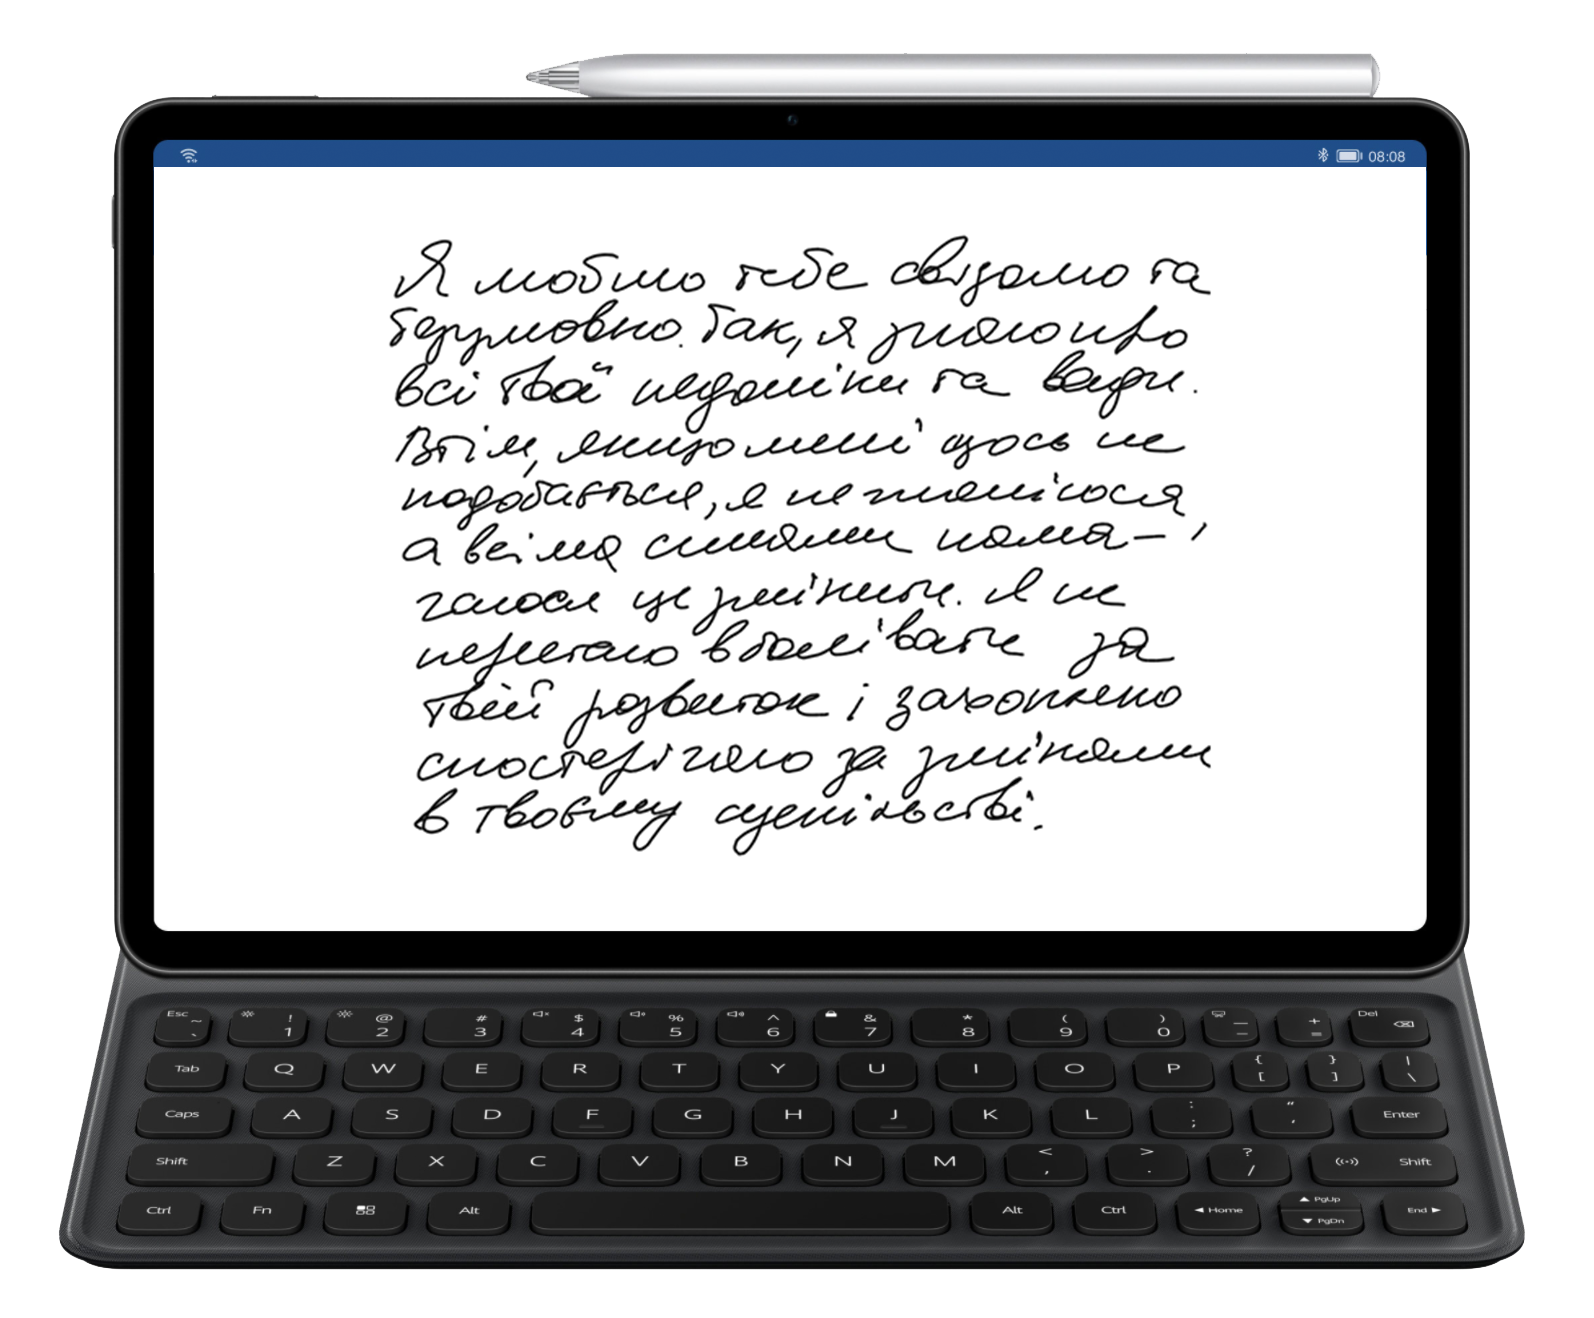 08:08
Я люблю тебе свідомо та
безумовно. Так, я знаю про
всі твої недоліки та вади.
Втім, якщо мені щось не
подобається, я не гнівюся,
а всіма силами нама-
гаюся це змінити. Я не
перестаю вболівати за
твій розвиток і захоплено
спостерігаю за змінами
в твоєму суспільстві.
Esc ~ ` ! 1 @ 2 # 3 $ 4 % 5 ^ 6 & 7 * 8 ( 9 ) 0 — – + = Del
Tab Q W E R T Y U I O P { [ } ] | \
Caps A S D F G H J K L : ; “ ‘ Enter
Shift Z X C V B N M < , > . ? / Shift
Ctrl Fn Alt Alt Ctrl ◄ Home ▲ PgUp ▼ PgDn End ►